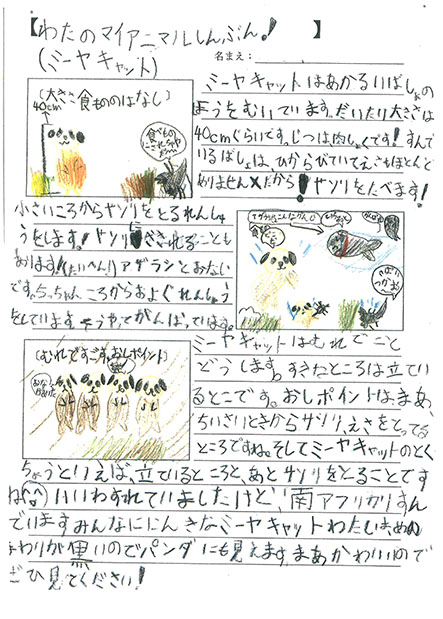 【わたのマイアニマルしんぶん! 】
(ミーヤキャット)
名まえ:
(大きさ食もののはなし)
40cm
ミーヤキャットはあかるいばしょの
ほうをむいています。だいたい大きさは
40cmぐらいです。じつは肉しょくです!すんで
いるばしょは、ひからびていてえさもほとんど
ありませんだから!サソリをたべます!
小さいころからサソリをとるれんしゅ
うをします!サソリにさされることも
あります!(たいへん!)アザラシとおなじ
です。ちっちゃいころからおよぐれんしゅう
をしています。そうやってがんばっています。
ミーヤキャットはむれでこと
どうします。すきなところは立てい
るとこです。おしポイントは、まあ、
ちいさいときからサソリ、えさをとってる
ところですね。そしてミーヤキャットのとく
(むれですごす。おしポイント)
ちょうといえば、立ているところと、あとサソリをとることです
ね(^^)いいわすれていましたけど、南アフリカにすん
でいますみんなににんきなミーヤキャットわたしは、めの
まわりが黒いのでパンダにも見えます。まあかわいいので
ぜひ見てください!